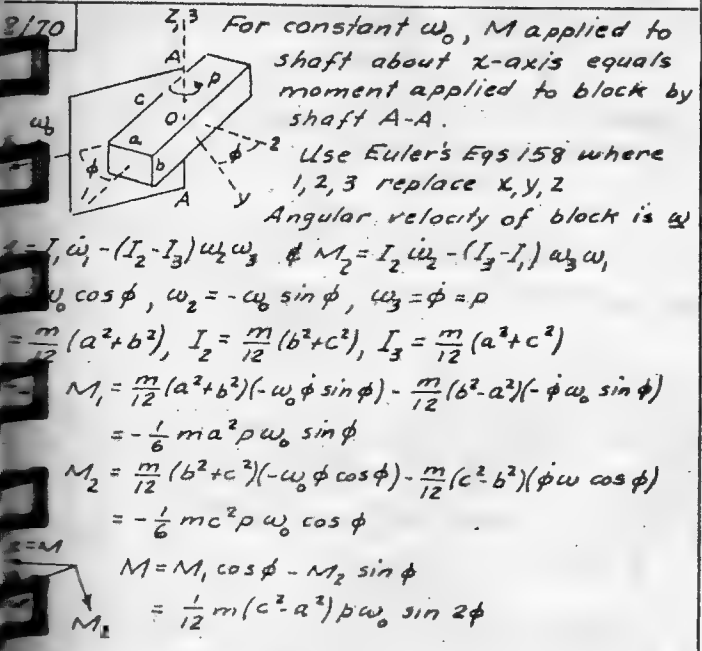 8/70
Z, 3
A
c
p
O
ω₀
a
b
φ
φ
2
1
y
A
For constant ω₀, M applied to
shaft about x-axis equals
moment applied to block by
shaft A-A.
Use Euler's Eqs 158 where
1, 2, 3 replace x, y, z
Angular velocity of block is ω
= I₁ω̇₁ - (I₂-I₃)ω₂ω₃ & M₂ = I₂ω̇₂ - (I₃-I₁)ω₃ω₁
ω₀ cos φ, ω₂ = -ω₀ sin φ, ω₃ = φ̇ = p
= m/12 (a²+b²), I₂ = m/12 (b²+c²), I₃ = m/12 (a²+c²)
M₁ = m/12 (a²+b²)(-ω₀ φ̇ sin φ) - m/12 (b²-a²)(-φ̇ ω₀ sin φ)
= -1/6 ma² p ω₀ sin φ
M₂ = m/12 (b²+c²)(-ω₀ φ̇ cos φ) - m/12 (c²-b²)(φ̇ ω cos φ)
= -1/6 mc² p ω₀ cos φ
= M
M = M₁ cos φ - M₂ sin φ
= 1/12 m(c²-a²) p ω₀ sin 2φ